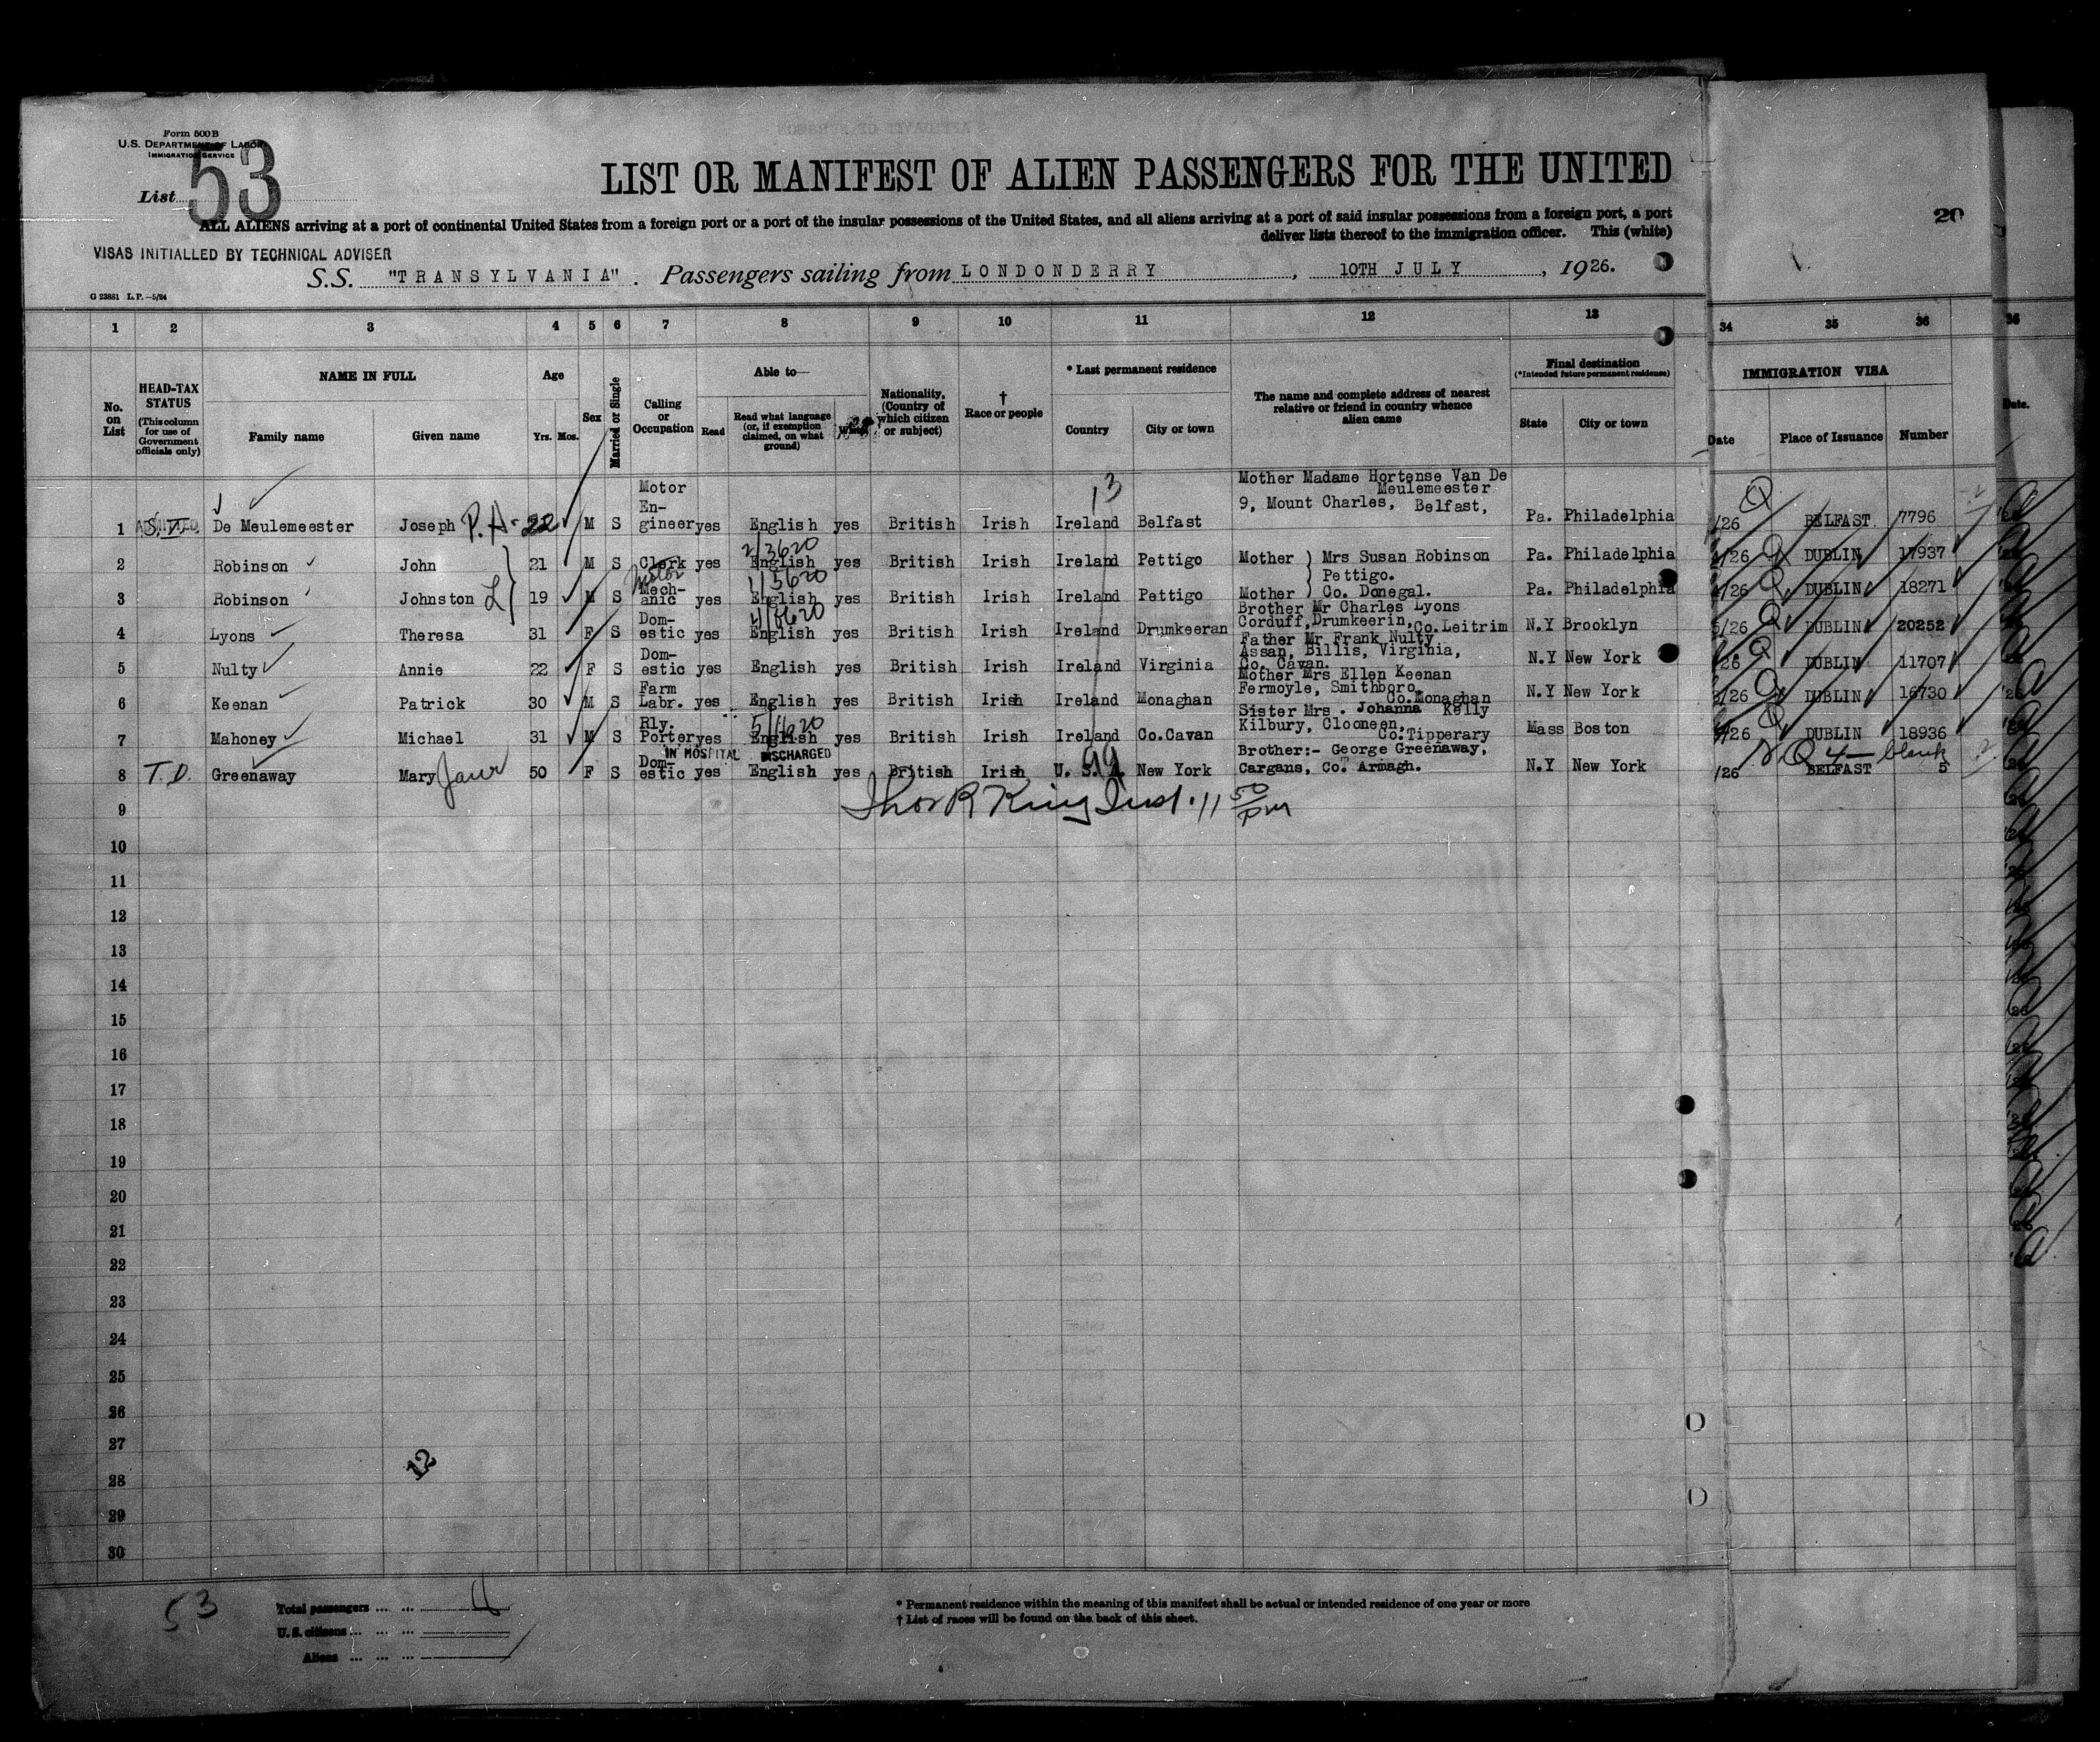 Form 500 B
U.S. DEPARTMENT OF LABOR
IMMIGRATION SERVICE
List 53
LIST OR MANIFEST OF ALIEN PASSENGERS FOR THE UNITED
ALL ALIENS arriving at a port of continental United States from a foreign port or a port of the insular possessions of the United States, and all aliens arriving at a port of said insular possessions from a foreign port, a port
deliver lists thereof to the immigration officer. This (white)
20
VISAS INITIALLED BY TECHNICAL ADVISER
S.S. "TRANSYLVANIA". Passengers sailing from LONDONDERRY, 10TH JULY, 1926.
G 23881 L.P.—5/24
1 2 3 4 5 6 7 8 9 10 11 12 13 34 35 36 36
No. on List
HEAD-TAX STATUS (This column for use of Government officials only)
NAME IN FULL
Family name Given name
Age
Yrs. Mos.
Sex
Married or Single
Calling or Occupation
Able to—
Read
Read what language (or, if exemption claimed, on what ground)
Write
Nationality. (Country of which citizen or subject)
† Race or people
* Last permanent residence
Country City or town
The name and complete address of nearest relative or friend in country whence alien came
Final destination
(*Intended future permanent residence)
State City or town
IMMIGRATION VISA
Date Place of Issuance Number
Date.
13
1 ADMITTED De Meulemeester Joseph P.A. 22 M S Motor En-gineer yes English yes British Irish Ireland Belfast Mother Madame Hortense Van De Meulemeester 9, Mount Charles, Belfast, Pa. Philadelphia /26 BELFAST 7796
2/3620
2 Robinson John 21 M S Clerk yes English yes British Irish Ireland Pettigo Mother ) Mrs Susan Robinson Pa. Philadelphia /26 DUBLIN 17937
) Pettigo.
1/3620
3 Robinson Johnston L 19 M S Motor Mech-anic yes English yes British Irish Ireland Pettigo Mother ) Co. Donegal. Pa. Philadelphia /26 DUBLIN 18271
4 Lyons Theresa 31 F S Dom-estic yes English yes British Irish Ireland Drumkeeran Brother Mr Charles Lyons Corduff, Drumkeerin, Co. Leitrim N.Y Brooklyn 5/26 DUBLIN 20252
5 Nulty Annie 22 F S Dom-estic yes English yes British Irish Ireland Virginia Father Mr Frank Nulty. Assan, Billis, Virginia, Co. Cavan. N.Y New York 26 DUBLIN 11707
6 Keenan Patrick 30 M S Farm Labr. yes English yes British Irish Ireland Monaghan Mother Mrs Ellen Keenan Fermoyle, Smithboro, Co. Monaghan N.Y New York /26 DUBLIN 16730
7 Mahoney Michael 31 M S Rly. Porter yes English yes British Irish Ireland Co. Cavan Sister Mrs. Johanna Kelly Kilbury, Clooneen, Co. Tipperary Mass Boston /26 DUBLIN 18936
IN HOSPITAL DISCHARGED
blank
8 T.D. Greenaway Mary Jane 50 F S Dom-estic yes English yes British Irish U. S. A. New York Brother:- George Greenaway, Cargans, Co. Armagh. N.Y New York /26 BELFAST 5
99
Thos R King Insp. 11 50 pm
9
10
11
12
13
14
15
16
17
18
19
20
21
22
23
24
25
26
27
28
29
30
12
53
Total passengers ... ...
U. S. citizens ... ... ...
Aliens ... ... ...
* Permanent residence within the meaning of this manifest shall be actual or intended residence of one year or more
† List of races will be found on the back of this sheet.